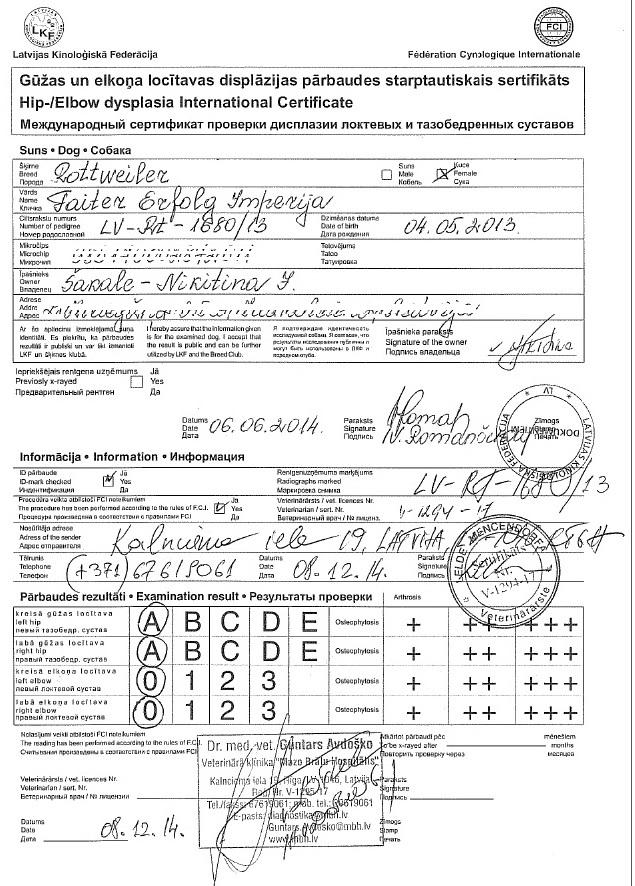 LATVIJAS
LKF
FCI
Latvijas Kinoloģiskā Federācija
Fédération Cynologique Internationale
Gūžas un elkoņa locītavas displāzijas pārbaudes starptautiskais sertifikāts
Hip-/Elbow dysplasia International Certificate
Международный сертификат проверки дисплазии локтевых и тазобедренных суставов
Suns • Dog • Собака
Šķirne
Breed
Порода
Rottweiler
Suns
Male
Кобель
Kuce
Female
Сука
Vārds
Name
Кличка
Taiter Erfolg Imperija
Ciltsrakstu numurs
Number of pedigree
Номер родословной
LV-Rt-1680/13
Dzimšanas datums
Date of birth
Дата рождения
04.05.2013
Mikročips
Microchip
Микрочип
Tetovējums
Tatoo
Татуировка
Īpašnieks
Owner
Владелец
Šakale-Nikitina J.
Adrese
Addre
Адрес
Ar šo apliecinu izmeklējamā suņa
identitāti. Es piekrītu, ka pārbaudes
rezultāti ir publiski un var tikt izmantoti
LKF un šķirnes klubā.
I hereby assure that the information given
is for the examined dog. I accept that
the result is public and can be further
utilized by LKF and the Breed Club.
Я подтверждаю идентичность
исследуемой собаки. Я согласен, что
результаты исследования публичны и
могут быть использованы в ЛКФ и
породном клубе.
Īpašnieka paraksts
Signature of the owner
Подпись владельца
Iepriekšējais rentgena uzņēmums
Previosly x-rayed
Предварительный рентген
Jā
Yes
Да
Datums
Date
Дата
06.06.2014.
Paraksts
Signature
Подпись
Zīmogs
Stamp
Печать
LATVIJAS KINOLOĢISKĀ FEDERĀCIJA
LV
Informācija • Information • Информация
ID pārbaude
ID-mark checked
Индентификация
Jā
Yes
Да
Rentgenuzņēmuma marķējums
Radiographs marked
Маркировка снимка
LV-Rt-1680/13
Procedūra veikta atbilstoši FCI noteikumiem
The procedure has been performed according to the rules of F.C.I.
Процедура произведена в соответствии с правилами FCI
Ja
Yes
Да
Veterinārārsts / vet. licences Nr.
Veterinarian / sert. Nr.
Ветеринарный врач / № лиценз.
V-1294-17
Nosūtītāja adrese
Adress of the sender
Адрес отправителя
Kalnciema iela 19, LATVIJA
Tālrunis
Telephone
Телефон
(+371) 67619061
Datums
Date
Дата
08.12.14.
Paraksts
Signature
Подпись
Sertifikāts
Nr.
V-1294-17
Veterinārārste
Pārbaudes rezultāti • Examination result • Результаты проверки
Arthrosis
kreisā gūžas locītava
left hip
левый тазобедр. сустав
A B C D E Osteophytosis + ++ +++
labā gūžas locītava
right hip
правый тазобедр. сустав
A B C D E Osteophytosis + ++ +++
kreisā elkoņa locītava
left elbow
левый локтевой сустав
0 1 2 3 Osteophytosis + ++ +++
labā elkoņa locītava
right elbow
правый локтевой сустав
0 1 2 3 Osteophytosis + ++ +++
Nolasījumi veikti atbilstoši FCI noteikumiem
The reading has been performed according to the rules of F.C.I.
Считывания произведены в соответствии с правилами FCI
Atkārtot pārbaudi pēc
To be x-rayed after
Повторить проверку через
mēnešiem
months
месяцев
Dr. med. vet. Guntars Avdoško
Veterinārā klīnika "Mazo Brāļu Hospitālis"
Kalnciema iela 19, Rīga, LV-1046, Latvija
Reģ. Nr. V-1295-17
Tel./fakss: 67619061; mob. tel.:
E-pasts: diagnostika@mbh.lv
Guntars.Avdosko@mbh.lv
www.mbh.lv
Veterinārārsts / vet. licences Nr.
Veterinarian / sert. Nr.
Ветеринарный врач / № лицензии
Paraksts
Signature
Подпись
Datums
Date
Дата
08.12.14.
Zīmogs
Stamp
Печать